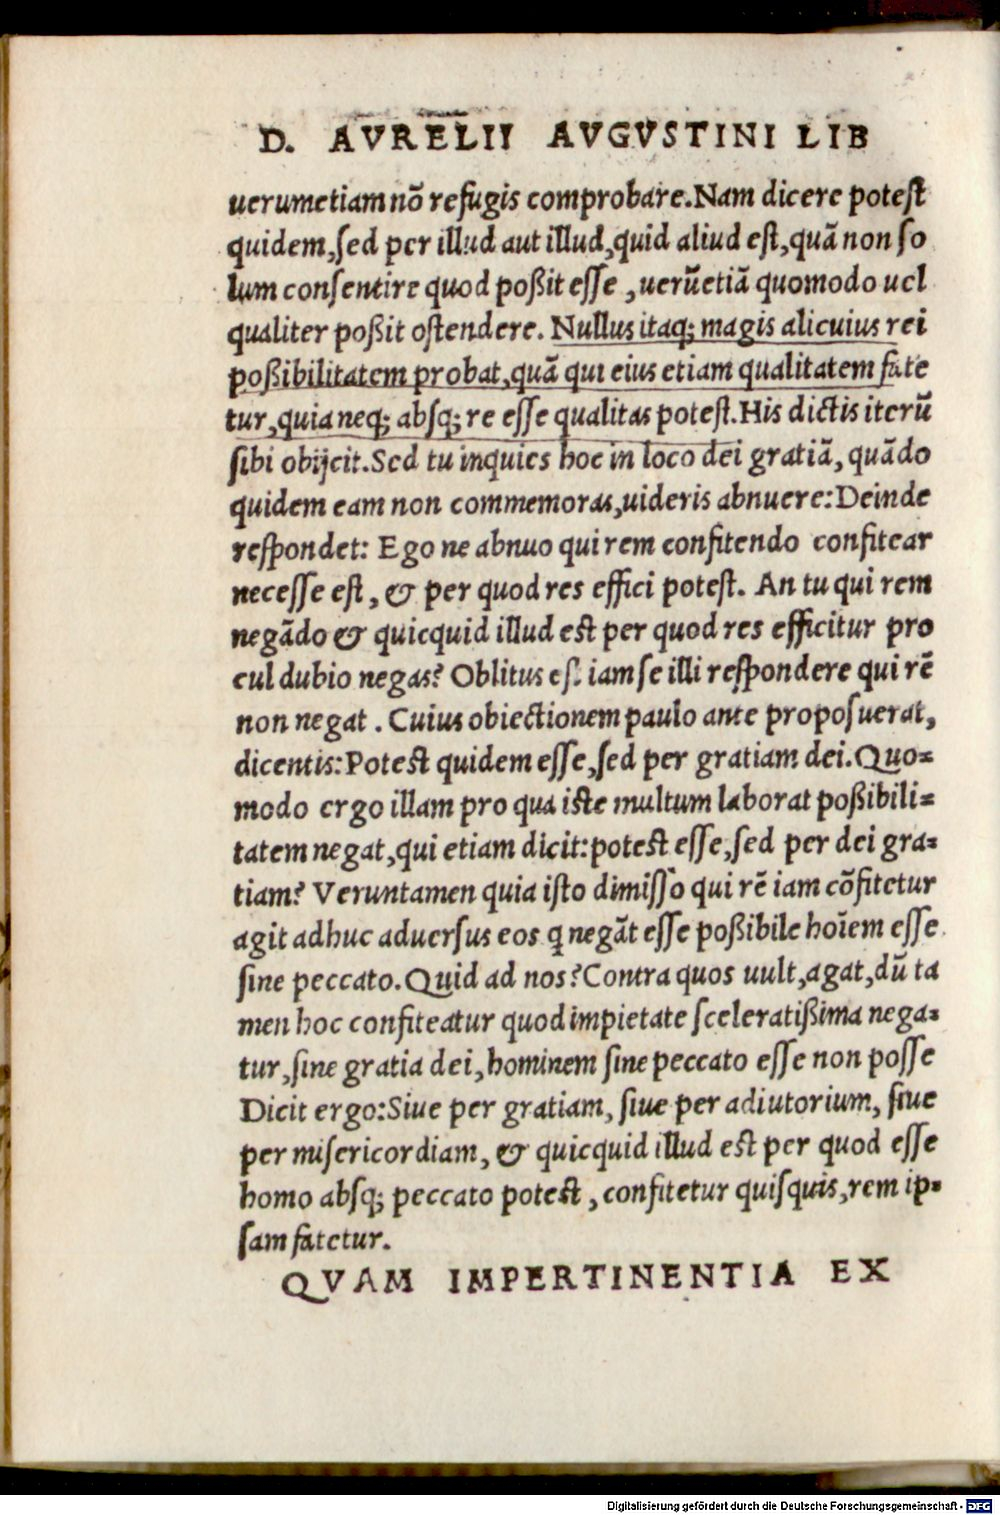 D. AVRELII AVGVSTINI LIB
uerumetiam nō refugis comprobare. Nam dicere potest
quidem, sed per illud aut illud, quid aliud est, quā non so
lum consentire quod poßit esse, uerūetiā quomodo uel
qualiter poßit ostendere. Nullus itaq; magis alicuius rei
poßibilitatem probat, quā qui eius etiam qualitatem fate
tur, quia neq; absq; re esse qualitas potest. His dictis iterū
sibi obijcit. Sed tu inquies hoc in loco dei gratiā, quādo
quidem eam non commemoras, uideris abnuere: Deinde
respondet: Ego ne abnuo qui rem confitendo confitear
necesse est, & per quod res effici potest. An tu qui rem
negādo & quicquid illud est per quod res efficitur pro
cul dubio negas? Oblitus est iam se illi respondere qui rē
non negat. Cuius obiectionem paulo ante proposuerat,
dicentis: Potest quidem esse, sed per gratiam dei. Quo-
modo ergo illam pro qua iste multum laborat poßibili-
tatem negat, qui etiam dicit: potest esse, sed per dei gra-
tiam? Veruntamen quia isto dimisso qui rē iam cōfitetur
agit adhuc aduersus eos q negāt esse poßibile hoīem esse
sine peccato. Quid ad nos? Contra quos uult, agat, dū ta
men hoc confiteatur quod impietate sceleratißima nega-
tur, sine gratia dei, hominem sine peccato esse non posse
Dicit ergo: Siue per gratiam, siue per adiutorium, siue
per misericordiam, & quicquid illud est per quod esse
homo absq; peccato potest, confitetur quisquis, rem ip-
sam fatetur.
QVAM IMPERTINENTIA EX
Digitalisierung gefördert durch die Deutsche Forschungsgemeinschaft - DFG